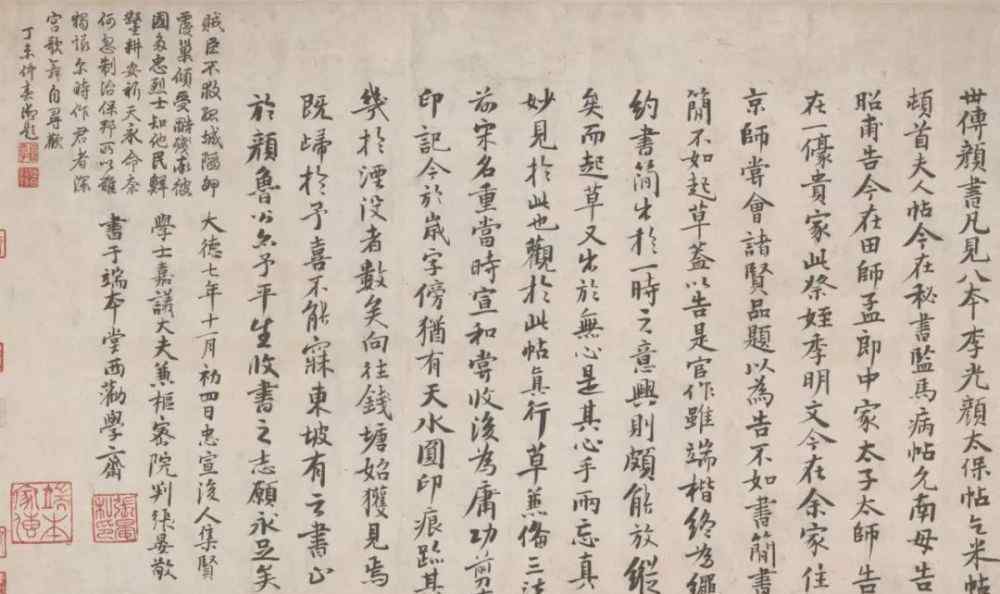 世傳顏書凡見八本李光顏太保帖乞米帖
頓首夫人帖今在秘書監馬病帖允南母告
昭甫告今在田師孟郎中家太子太師告
在一豪貴家此祭姪季明文今在余家往
京師嘗會諸賢品題以為告不如書簡書
簡不如起草蓋以告是官作雖端楷終為繩
約書簡出於一時之意興則頗能放縱
矣而起草又出於無心是其心手兩忘真
妙見於此也觀於此帖真行草兼備三法
前宋名重當時宣和嘗收後為庸功剪
印記今於歲字傍猶有天水圓印痕跡其
幾於湮没者數矣向往錢塘始獲見焉
既歸於予喜不能寐東坡有云書止
於顏魯公尒予平生收書之志願永足矣
大德七年十一月初四日忠宣後人集賢
學士嘉議大夫兼樞密院判張晏敬
書于端本堂西勸學齋
賊臣不救孤城陷卵
覆巢傾受酷殘承彼
國多忠烈士知他民鮮
墾耕安祈天永命奈
何忽制治保邦所以難
獨議尒時作君者深
宮歌舞自尋歡
丁未仲春御題
張晏私印
端本家傳